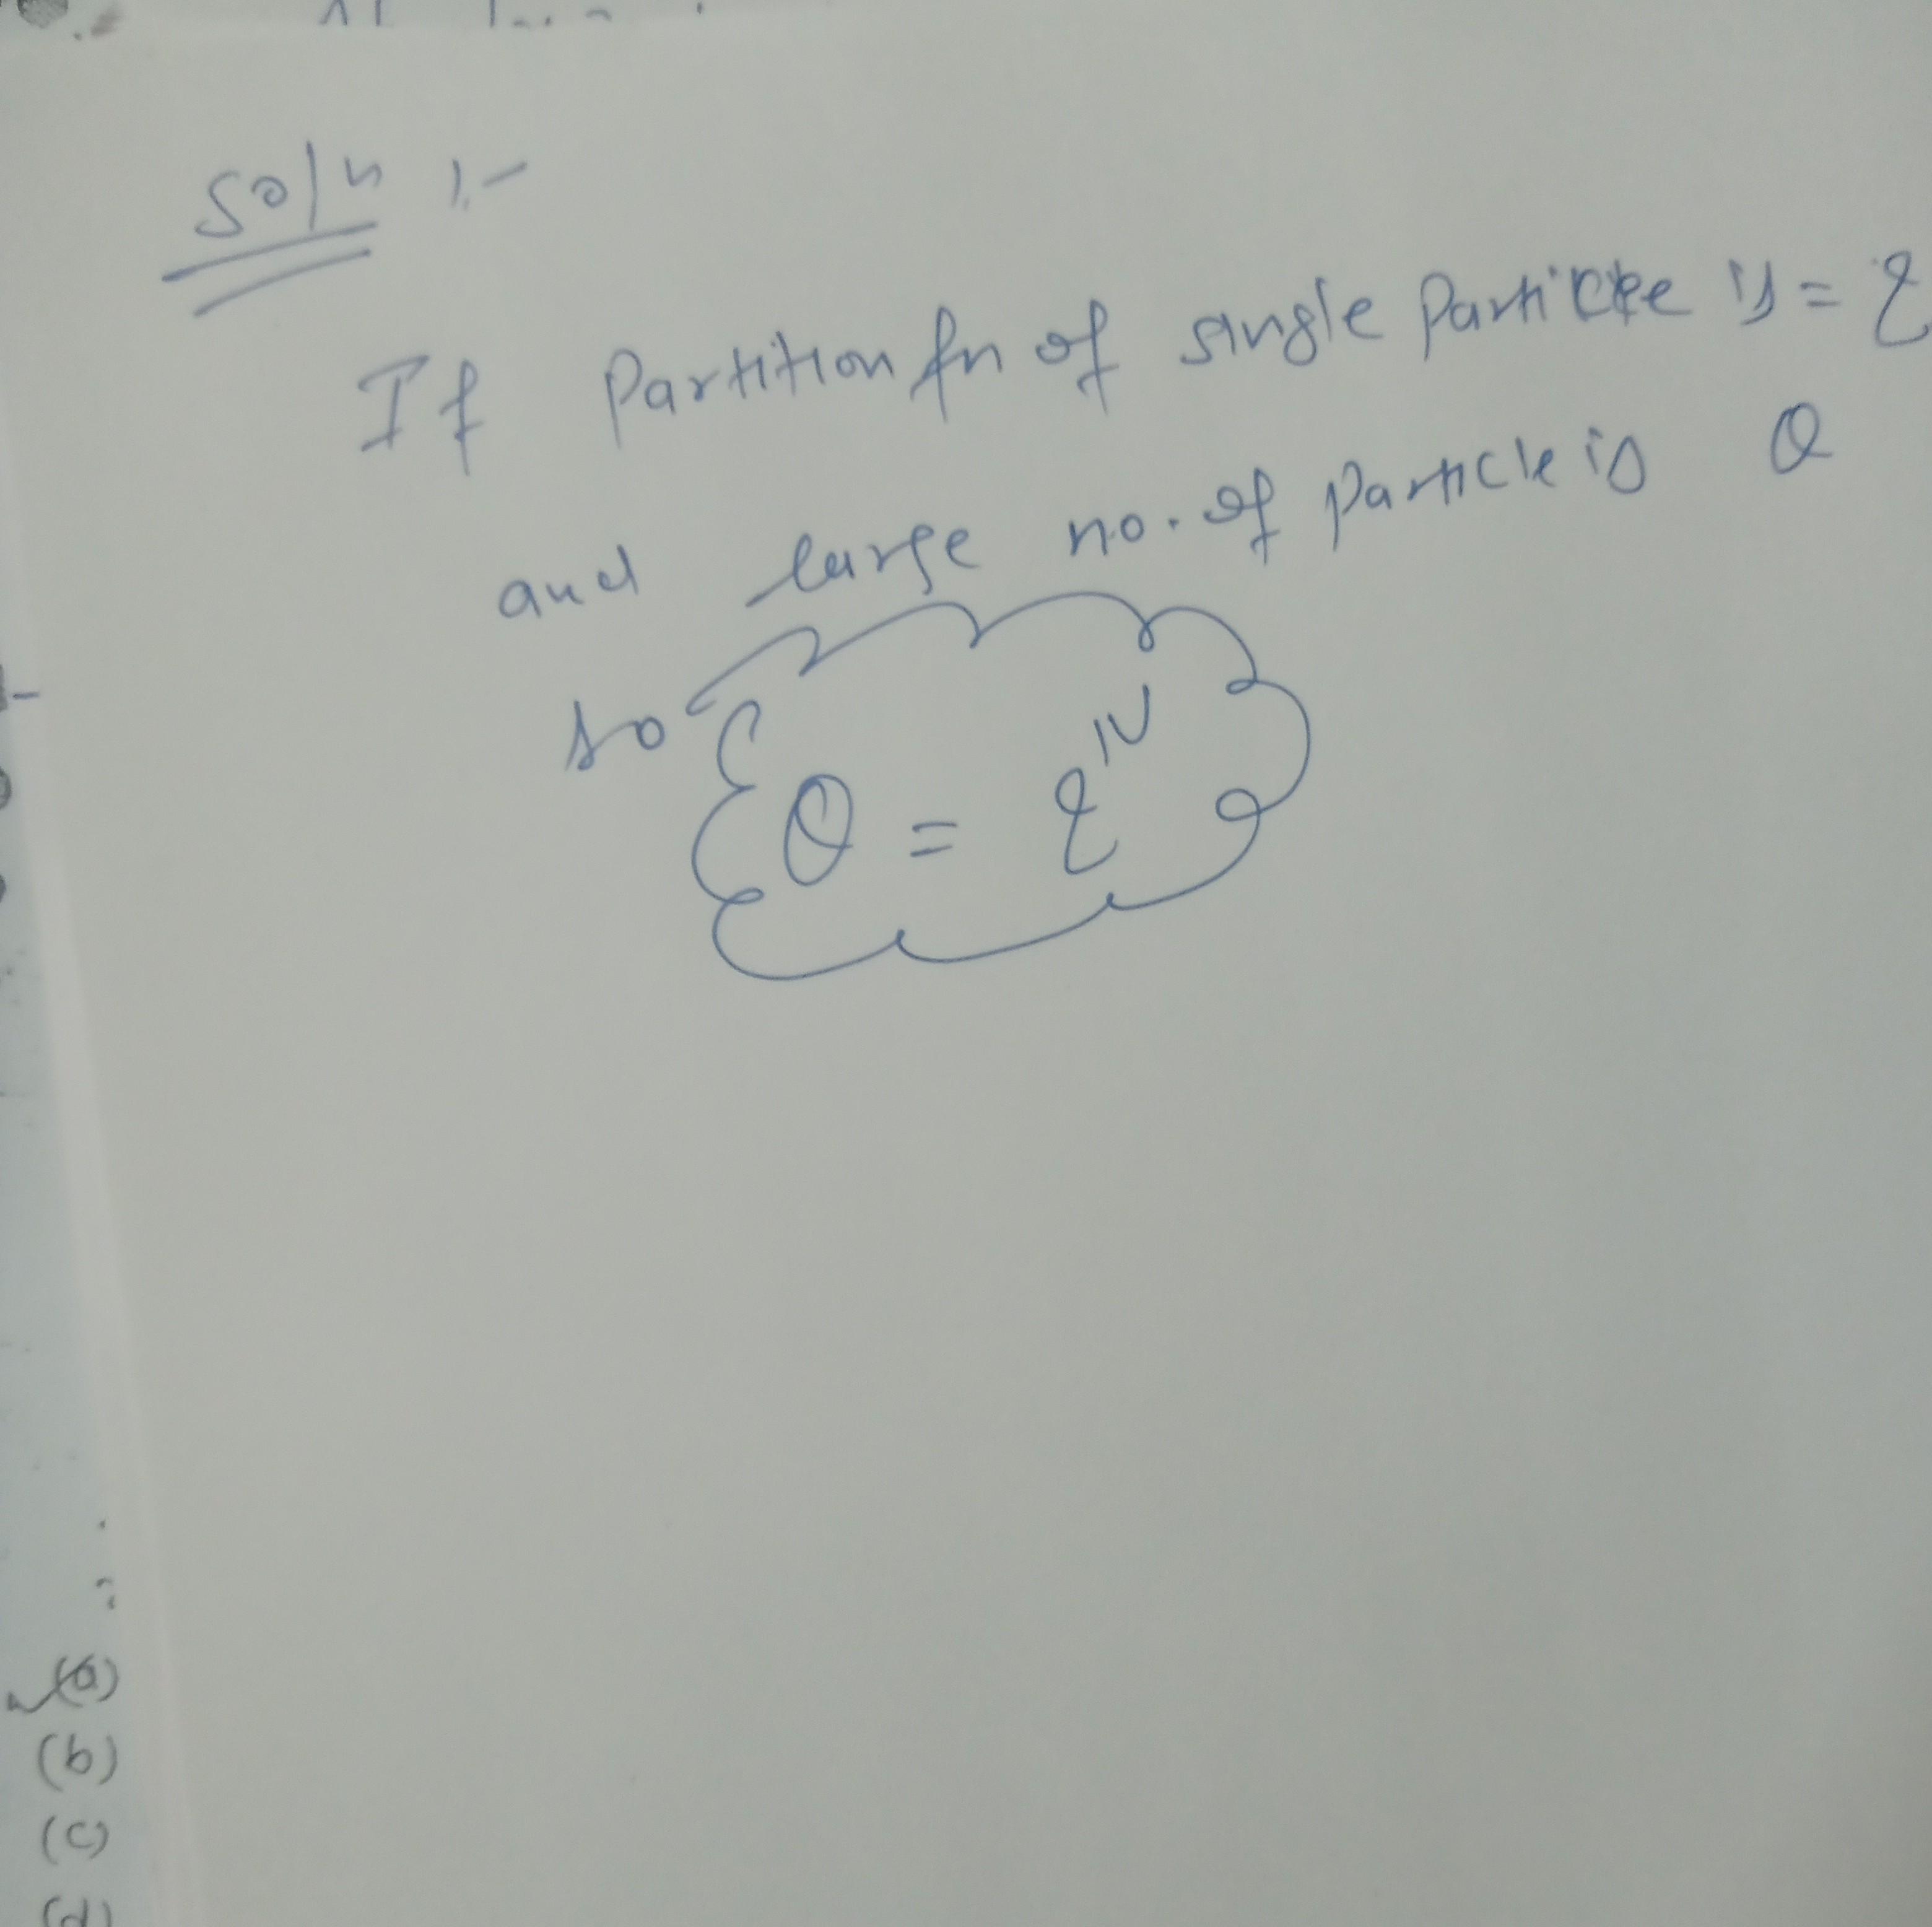 Soln :-
If Partition fn of single Particle is = q
and large no. of particle is Q
so
Q = q^N
(a)
(b)
(c)
(d)